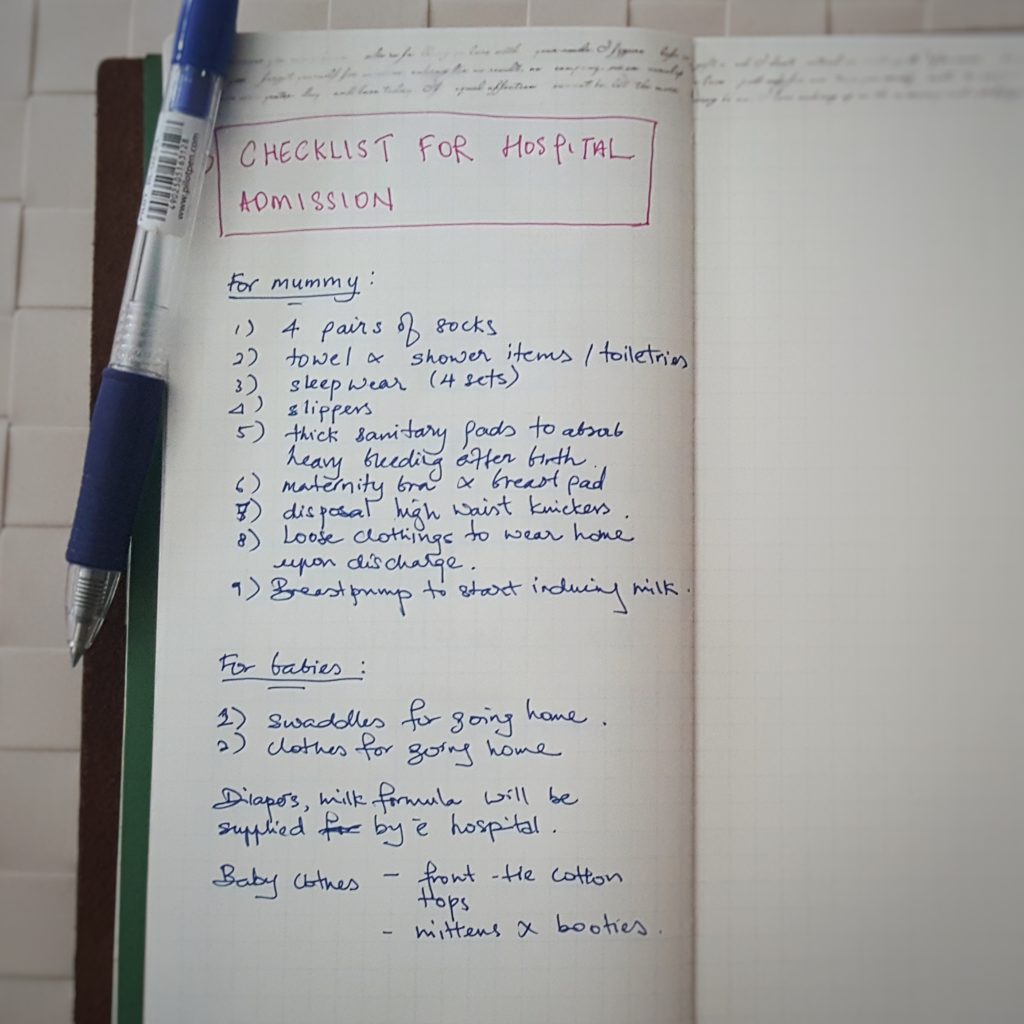 www.pilotpen.com
CHECKLIST FOR HOSPITAL
ADMISSION
For mummy :
1) 4 pairs of socks
2) towel & shower items / toiletries
3) sleepwear (4 sets)
4) slippers
5) thick sanitary pads to absorb
heavy bleeding after birth.
6) maternity bra & breast pad
7) disposal high waist knickers.
8) Loose clothings to wear home
upon discharge.
9) Breastpump to start inducing milk.
For babies :
1) swaddles for going home.
2) clothes for going home
Diapers, milk formula will be
supplied for by e hospital.
Baby clothes - front-tie cotton
tops
- mittens & booties.